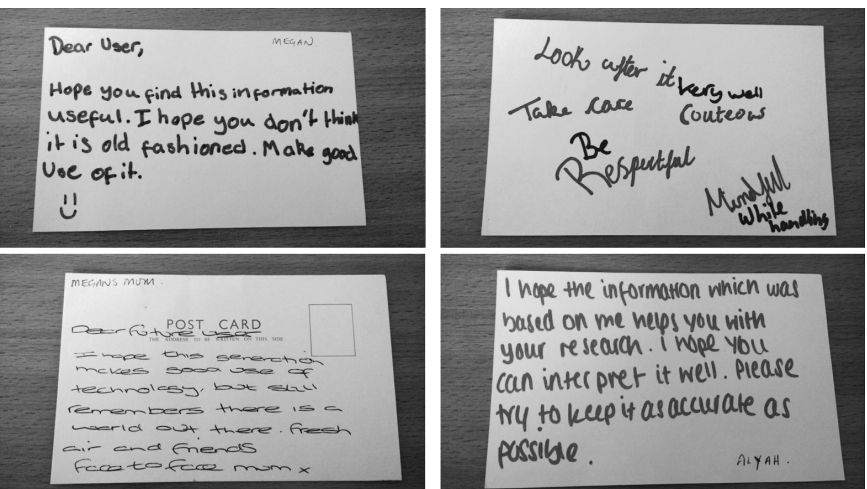 Dear User,
MEGAN
Hope you find this information
useful. I hope you don't think
it is old fashioned. Make good
Use of it.
Look after it very well
Take care
Couteous
Be
Respectful
Mindful
While
handling
MEGANS MUM.
POST CARD
THE ADDRESS TO BE WRITTEN ON THIS SIDE
Dear future user
I hope this generation
makes good use of
technology, but still
remembers there is a
world out there. Fresh
air and friends
face to face mum x
I hope the information which was
based on me helps you with
your research. I hope you
can interpret it well. Please
try to keep it as accurate as
possible.
ALYAH.